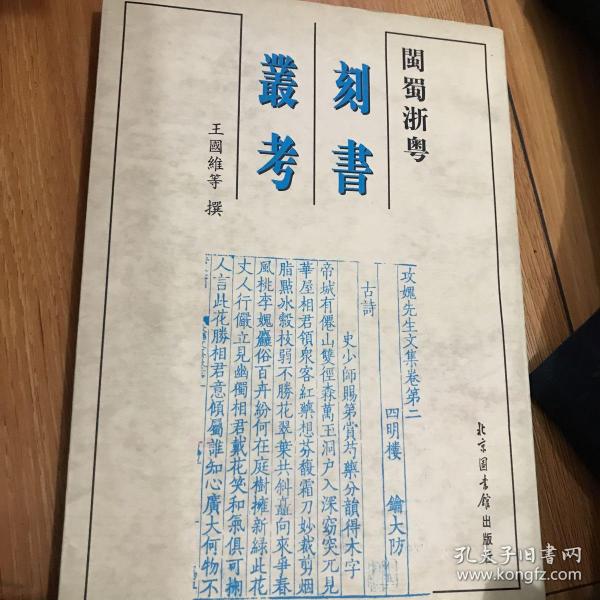 閩蜀浙粤
刻書
叢考
王國維等 撰
攻媿先生文集卷第二
四明樓 鑰大防
古詩
史少師賜第賞芍藥分韻得木字
帝城有僊山雙徑森萬玉洞户入深窈突兀見
華屋相君領衆客紅藥想芬馥霜刀妙裁剪烟
脂點冰縠枝弱不勝花翠葉共斜矗向來爭春
風桃李媿麤俗百卉紛何在庭樹擁新緑此花
丈人行儼立見幽獨相君戴花笑和氣俱可掬
人言此花勝相君意傾屬誰知心廣大何物不
北京圖書館出版
孔夫子旧书网
www.kongfz.com